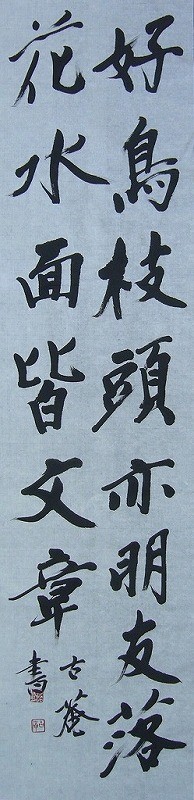 好鳥枝頭亦朋友落
花水面皆文章
古菴
書